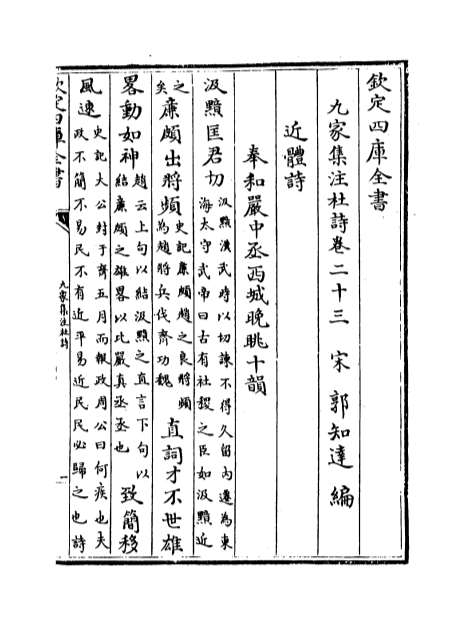 欽定四庫全書
九家集注杜詩卷二十三 宋 郭知達 編
近體詩
奉和嚴中丞西城晚眺十韻
汲黯匡君切 汲黯漢武時以切諫不得久留內遷為東
海太守武帝曰古有社稷之臣如汲黯近
之矣 廉頗出將頻 史記廉頗趙之良將頻
為趙將兵伐齊功魏 直詞才不世雄
畧動如神 趙云上句以結汲黯之直言下句以
結廉頗之雄畧以比嚴真丞丞也 致簡移
風速 史記太公封于齊五月而報政周公曰何疾也夫
政不簡不易民不有近平易近民民必歸之也詩
欽定四庫全書
九家集注杜詩
一